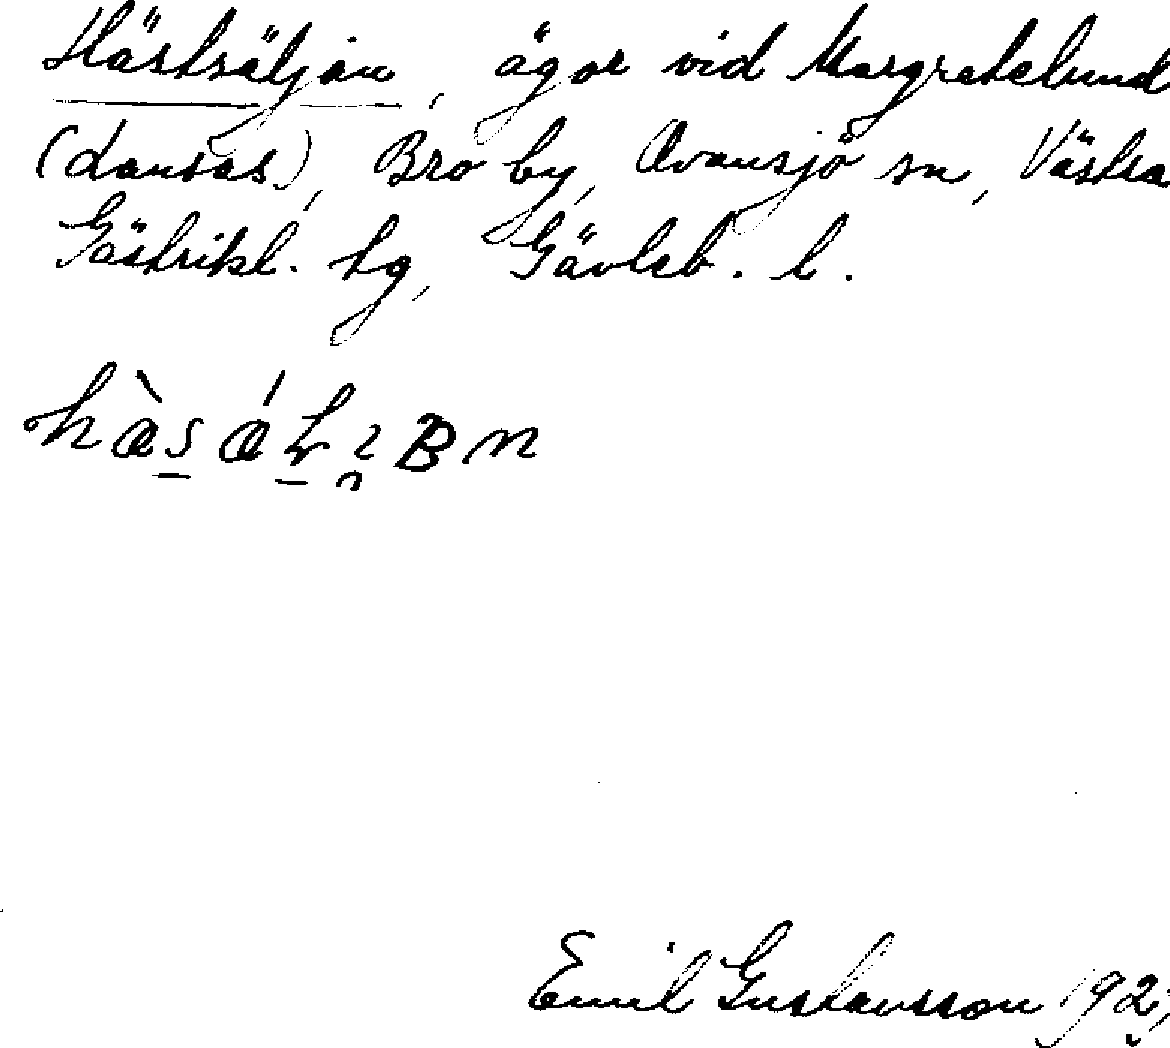 Hästsäljan, ägor vid Margretelund
(dansas), Bro by, Ovansjö sn, Västra
Gästrikl. tg, Gävleb. l.
Emil Gustavsson 192